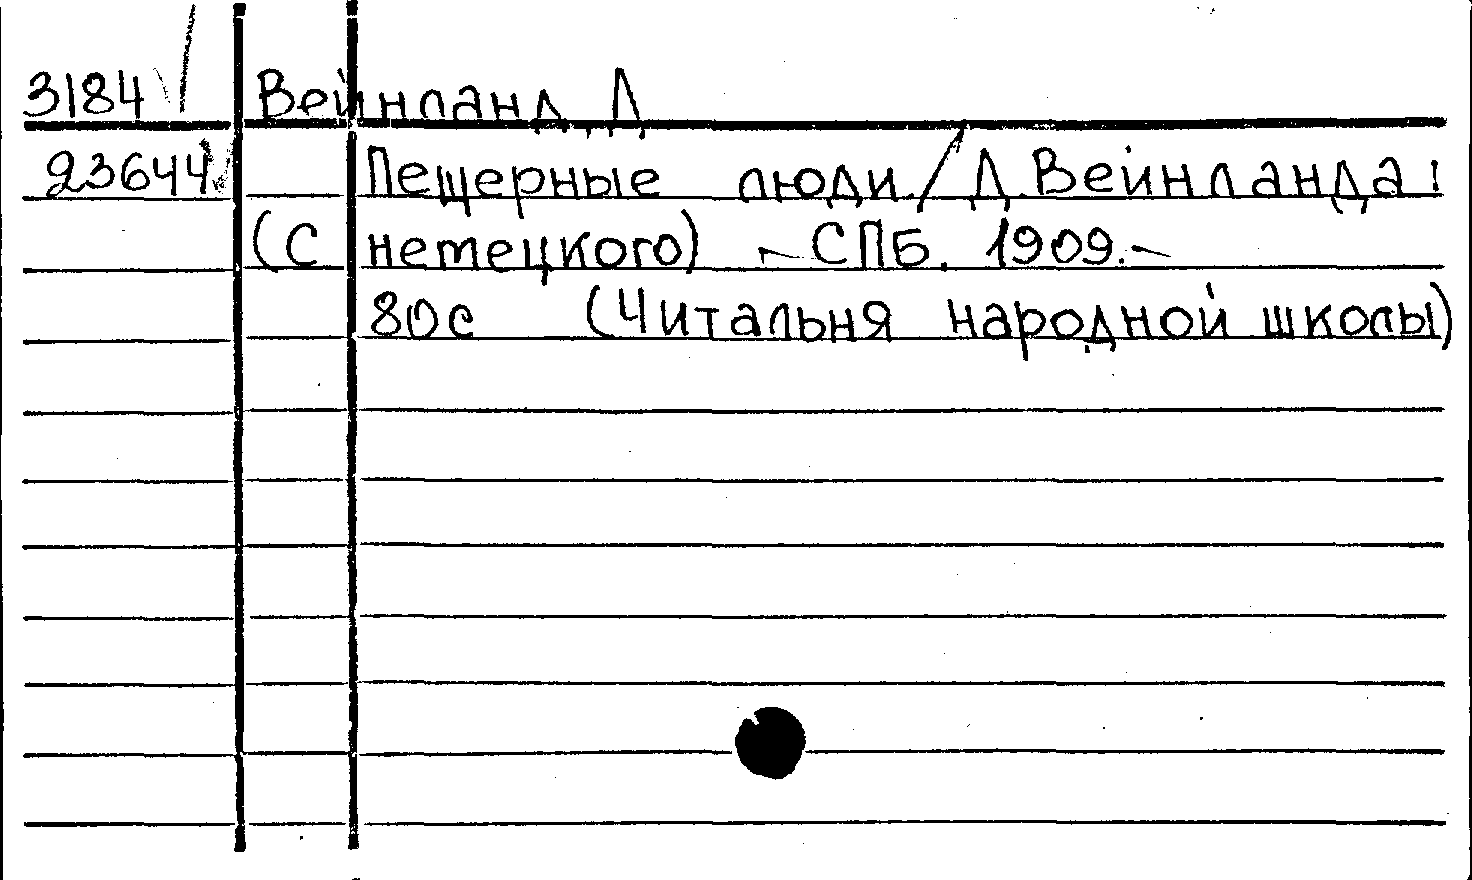 3184 Вейнланд, Д
23644 Пещерные люди / Д. Вейнланда:
(С немецкого) - СПБ. 1909. -
80с (Читальня народной школы)